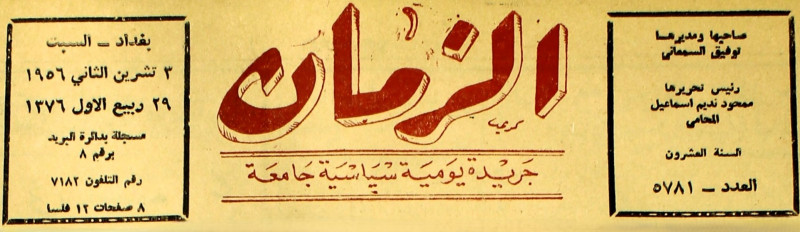 صاحبها ومديرها
توفيق السمعاني
رئيس تحريرها
محمود نديم اسماعيل
المحامي
السنة العشرون
العدد - ٥٧٨١
الزمان
جريدة يومية سياسية جامعة
بغداد - السبت
٣ تشرين الثاني ١٩٥٦
٢٩ ربيع الاول ١٣٧٦
مسجلة بدائرة البريد
برقم ٨
رقم التلفون ٧١٨٢
٨ صفحات ١٢ فلسا